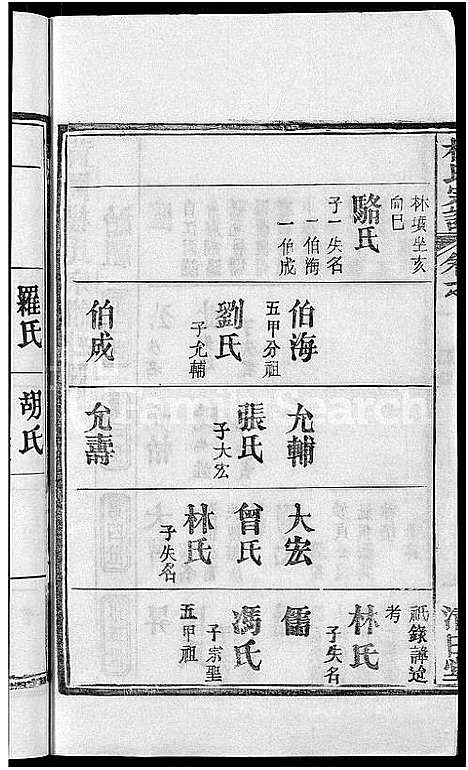 林塡坐亥
向巳
駱氏
子一失名
一伯海
一伯成
伯海
五甲分祖
劉氏
子允輔
伯成
允輔
張氏
子大宏
允壽
大宏
曾氏
林氏
子失名
祇錄諱迨
考
林氏
子失名
儒
馮氏
子宗聖
五甲祖
羅氏
胡氏